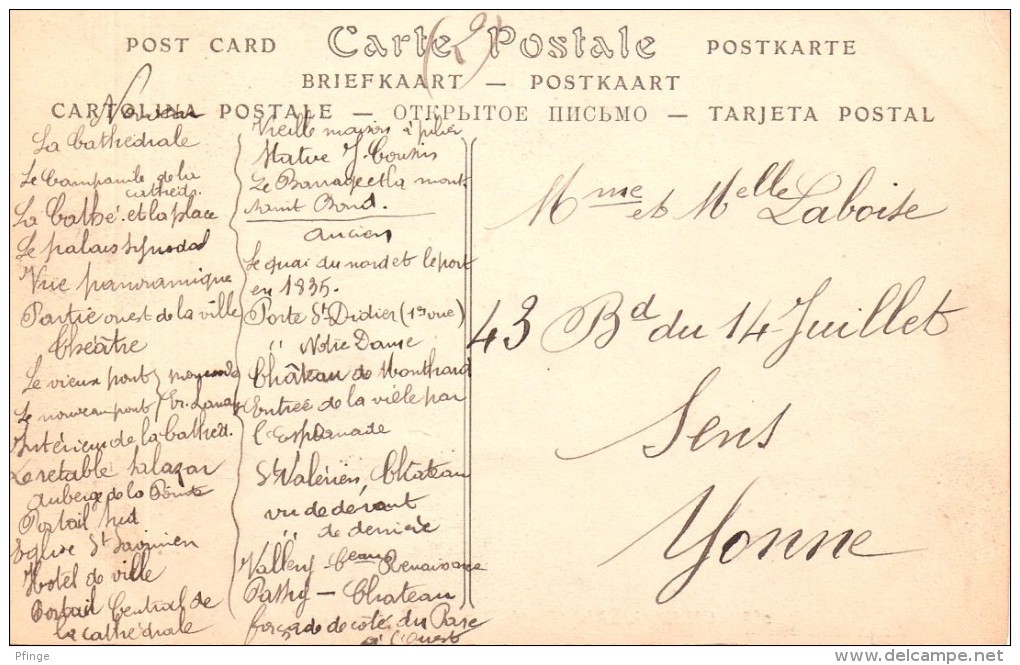 POST CARD
Carte Postale
POSTKARTE
(2)
BRIEFKAART — POSTKAART
CARTOLINA POSTALE — ОТКРЫТОЕ ПИСЬМО — TARJETA POSTAL
La Cathédrale
Le Campanile de la
cathéd.
La Cathé. et la place
Le palais Synodal
Vue panoramique
Partie ouest de la ville
Théâtre
Le vieux pont
Le nouveau pont
Intérieur de la Cathéd.
Le retable Salazar
Auberge de la Pointe
Portail Sud
Eglise St Savinien
Hotel de ville
Portail Central de
la cathédrale
Vieille maison à pilier
Statue J. Cousin
Le Barrage et la mont.
Saint Bond.
Ancien
Le quai du nord et le port
en 1835.
Porte St Didier (1re vue)
" Notre Dame
Château de Monthard
Entrée de la ville par
l'Esplanade
St Valérien, Château
vu de devant
" de derrière
Vallery - Renaissance
Passy - Chateau
façade de côté du Parc
à l'Ouest
Mme et Melle Laboise
43 Bd du 14 Juillet
Sens
Yonne
Pfinge
delcampe.net